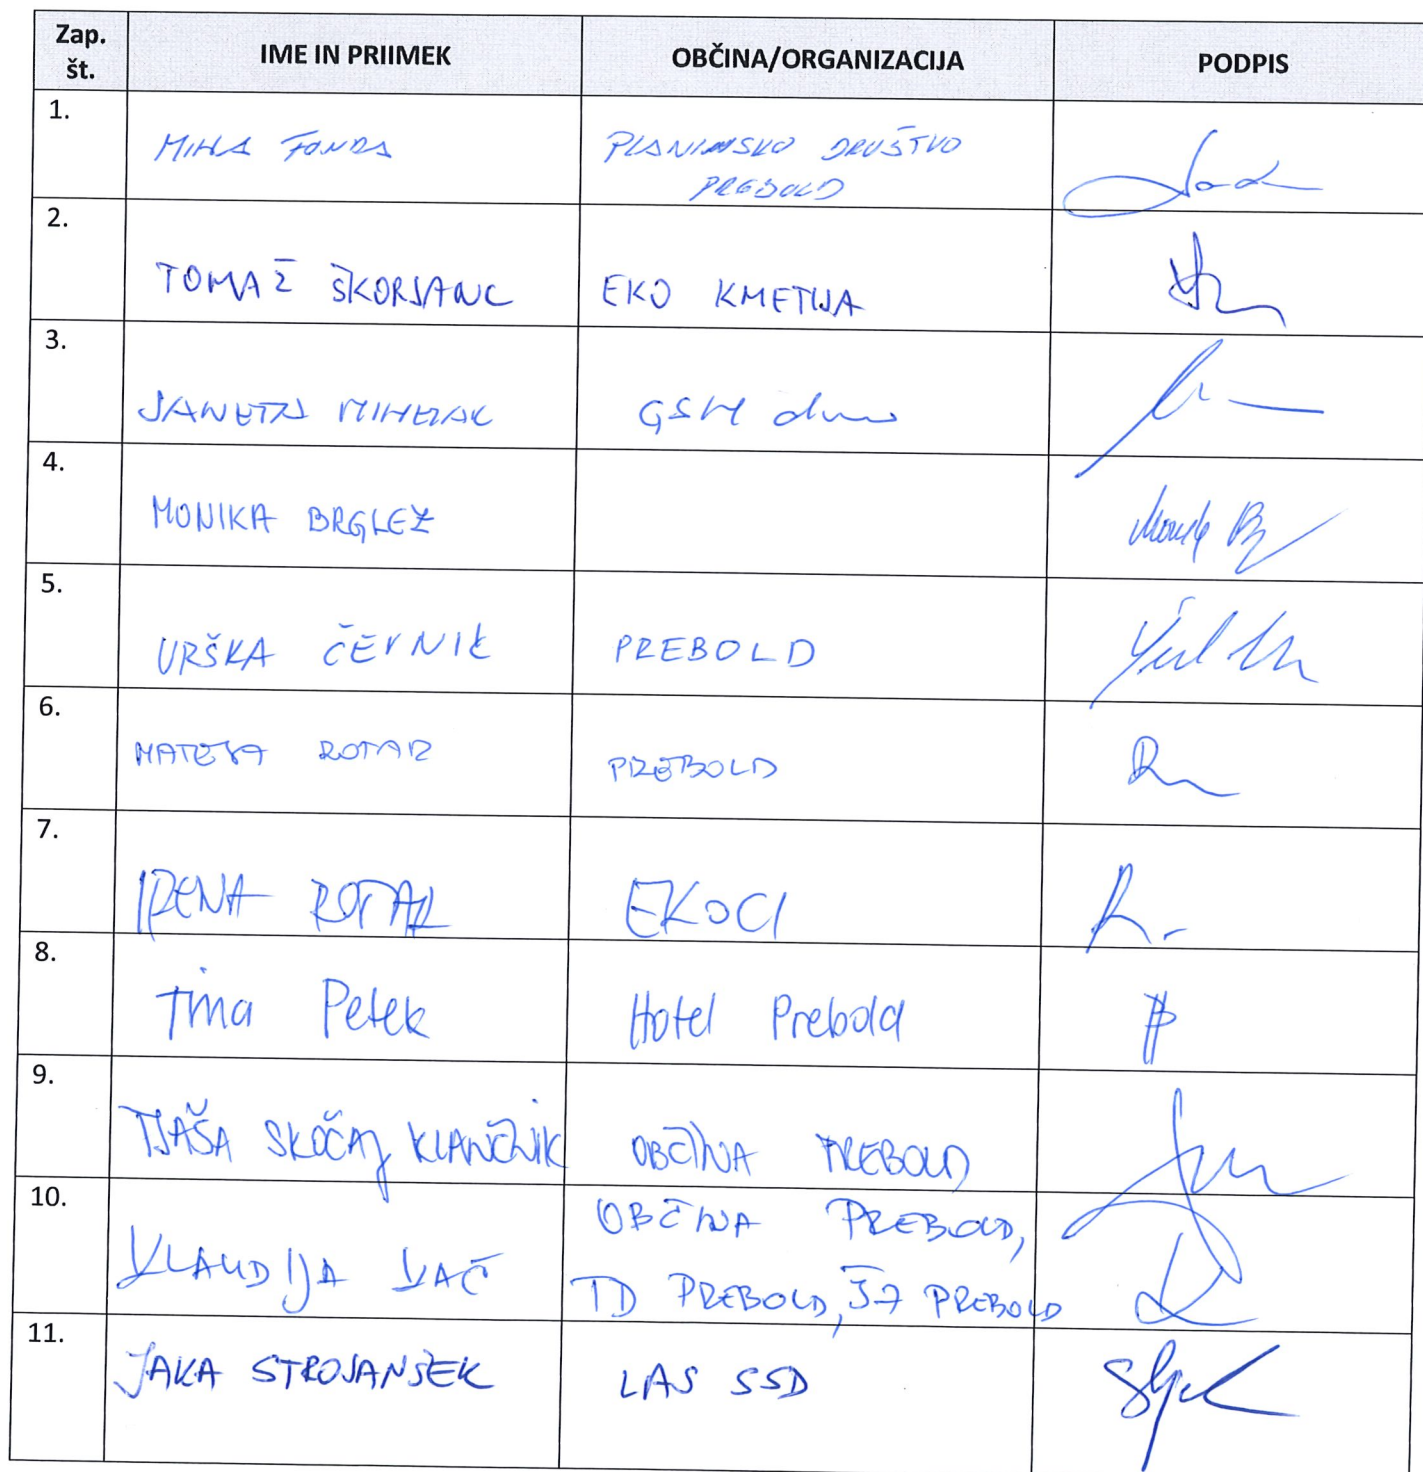 Zap. št. IME IN PRIIMEK OBČINA/ORGANIZACIJA PODPIS
1. MIHA FONDA PLANINSKO DRUŠTVO
PREBOLD
2. TOMAŽ ŠKORJANC EKO KMETIJA
3. GSM
4. MONIKA BRGLEZ
5. URŠKA PREBOLD
6. MATEJA ROTAR PREBOLD
7. IRENA ROTAR EKOCI
8. Tina Petek Hotel Prebold
9. TJAŠA SKOČAJ KLANČNIK OBČINA PREBOLD
10. KLAUDIJA OBČINA PREBOLD,
TD PREBOLD, PREBOLD
11. JAKA STROJANŠEK LAS SSD